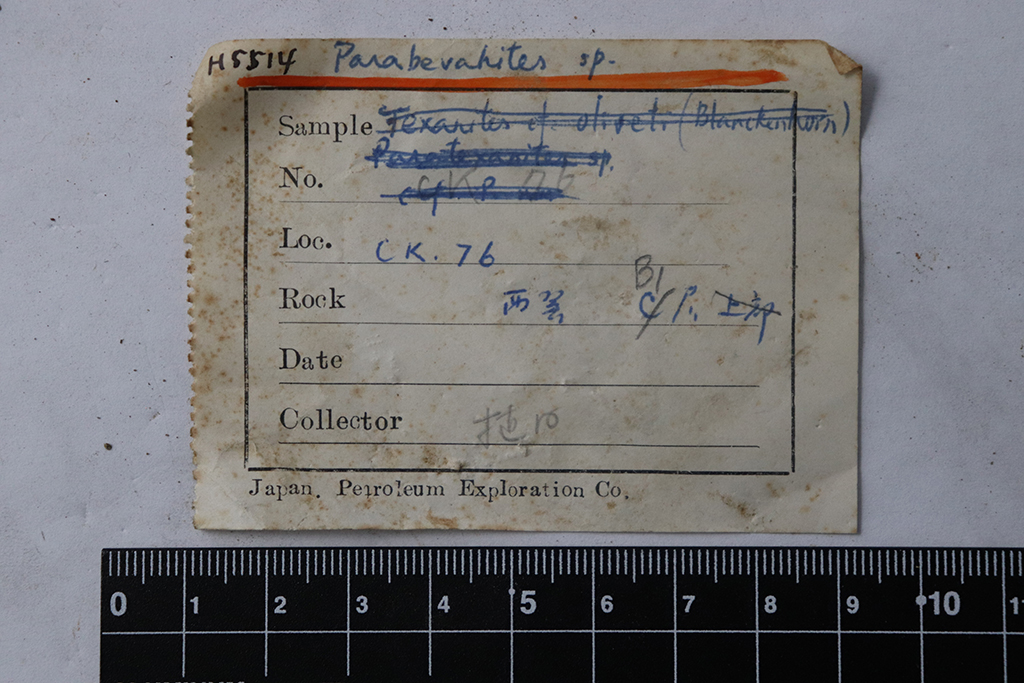 H5514 Parabevahites sp.
Sample Texanites cf. oliveti (Blanckenhorn)
Paratexanites sp.
No. CK 76
Loc. CK. 76
Rock B1
Date
Collector
Japan. Petroleum Exploration Co.
0 1 2 3 4 5 6 7 8 9 10 11